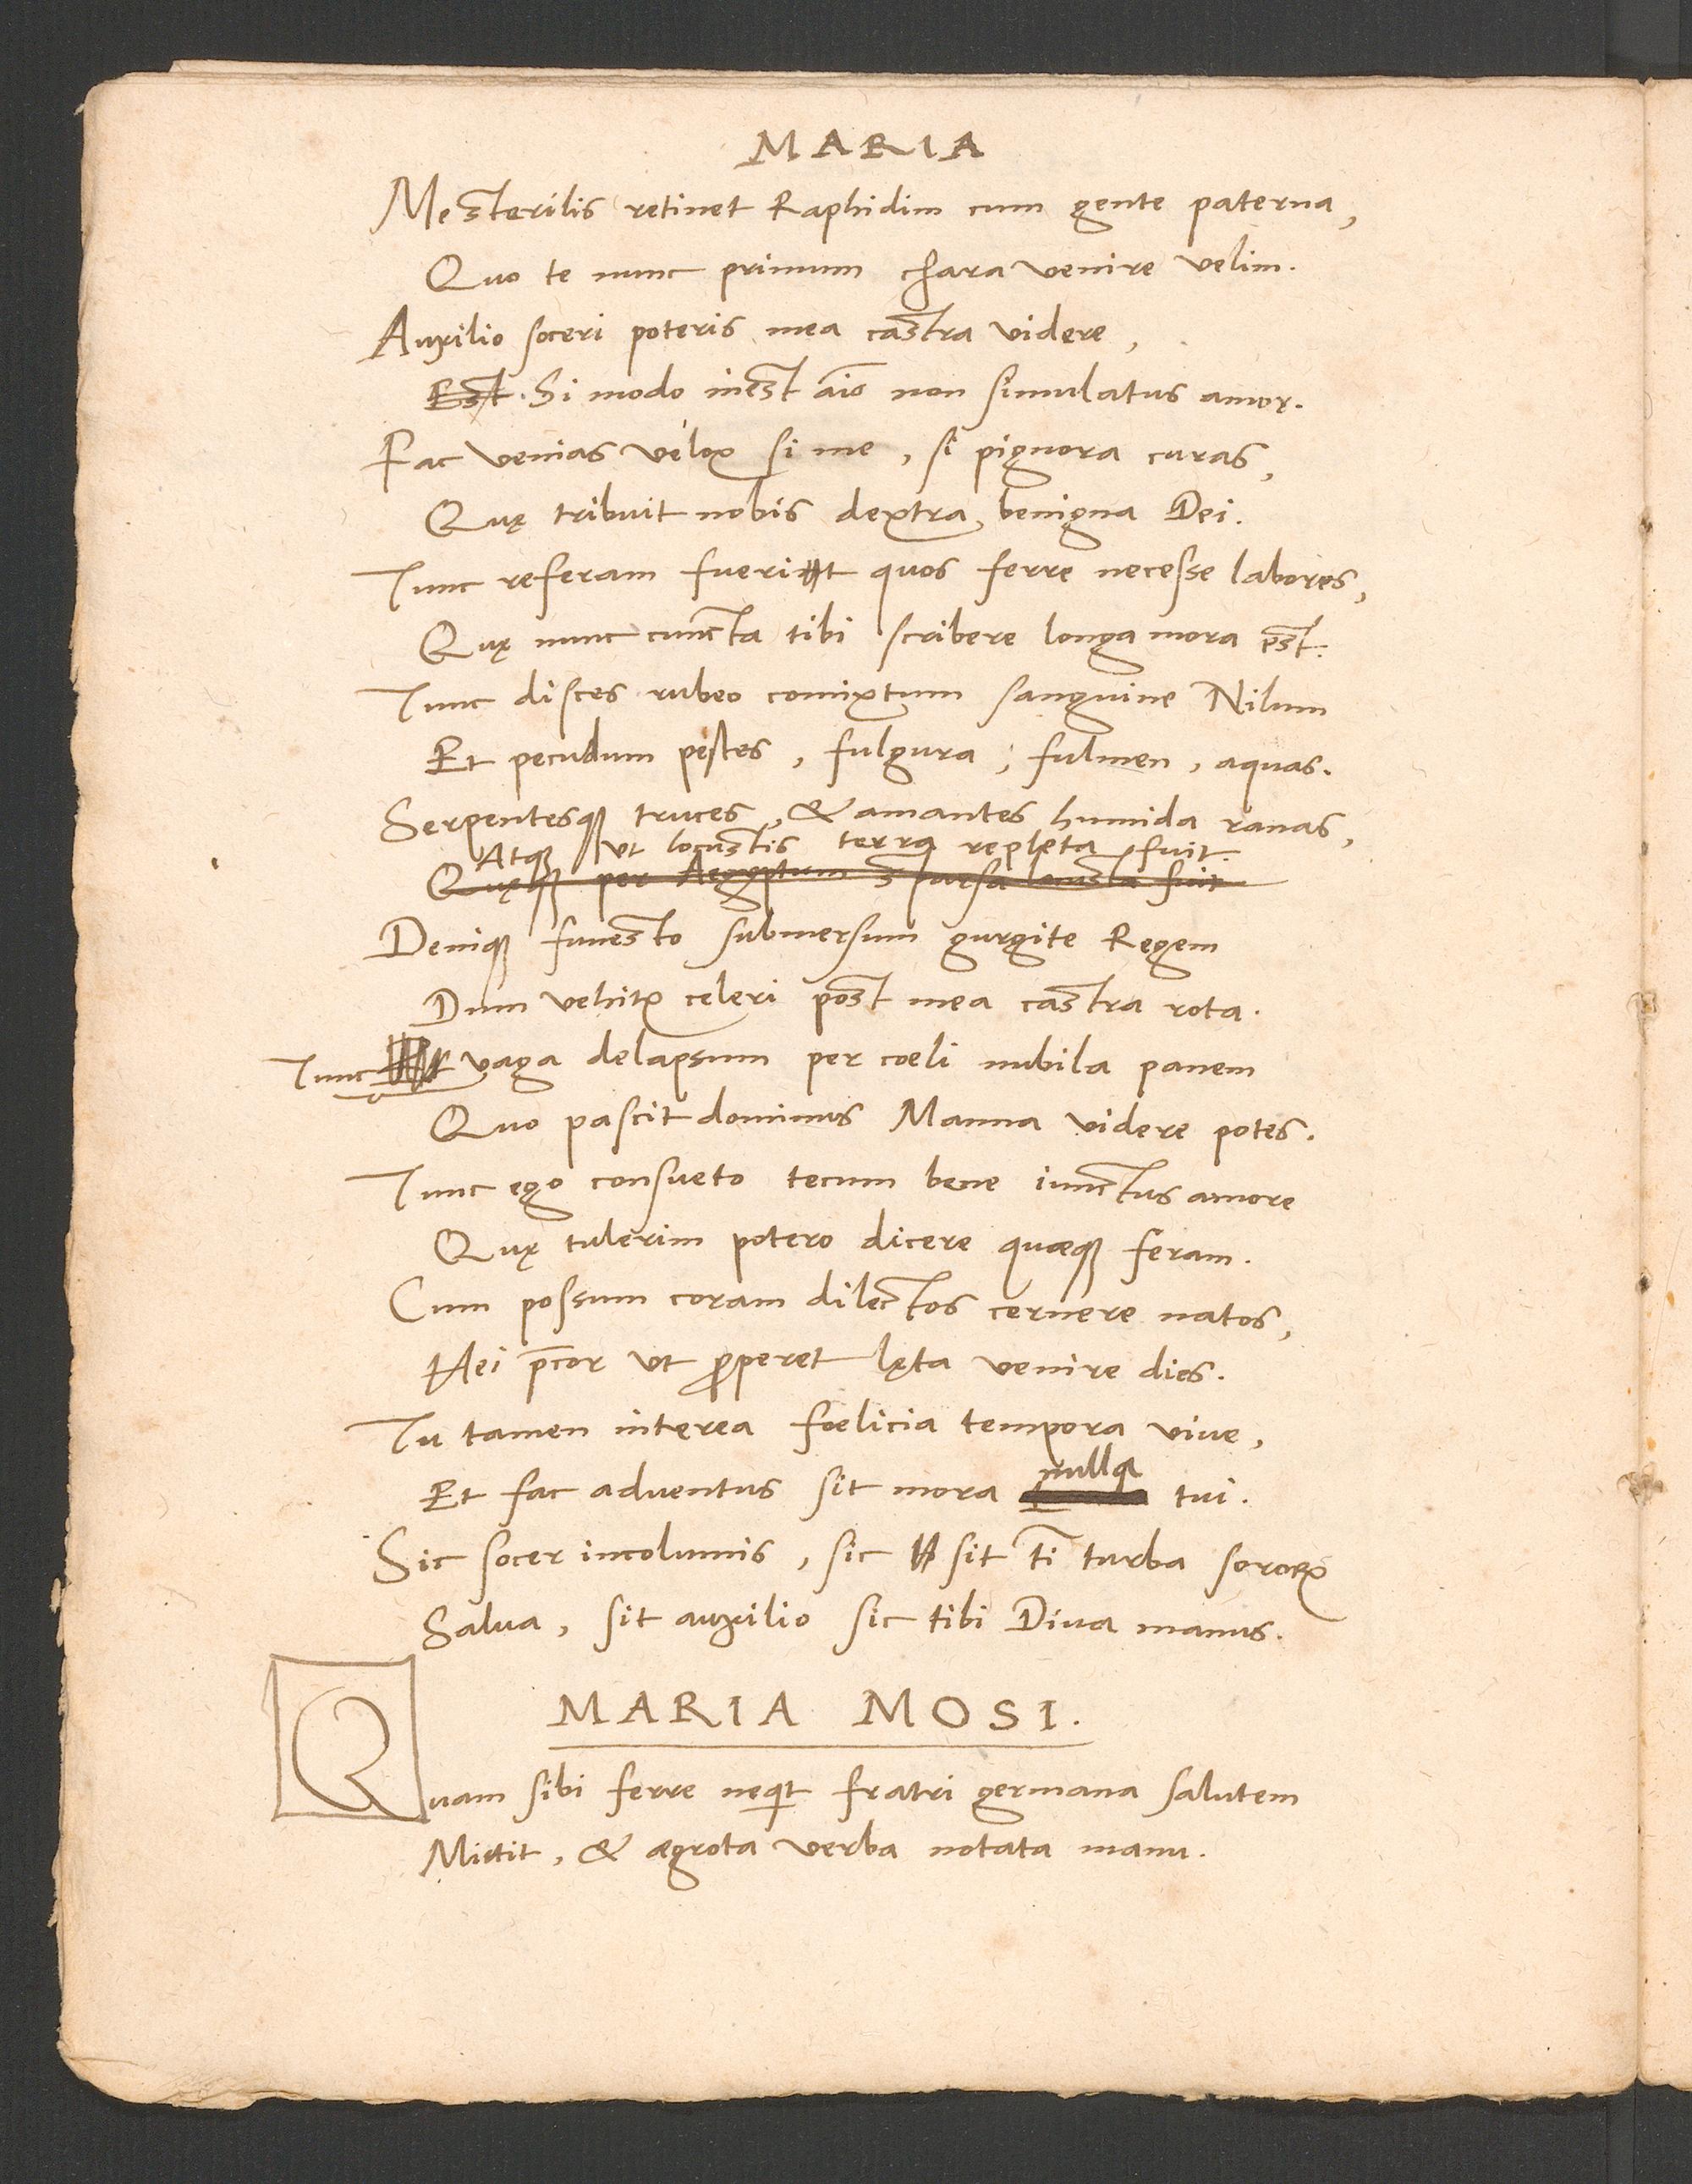 MARIA
Me sterilis retinet Raphidim cum gente paterna,
Quo te nunc primum chara venire velim.
Auxilio soceri poteris mea castra videre,
Est. Si modo inest aīo non simulatus amor.
Fac venias velox si me, si pignora curas,
Quę tribuit nobis dextra benigna Dei.
Tunc referam fuerit quos ferre necesse labores,
Quę nunc cuncta tibi scribere longa mora est.
Tunc disces rubeo comixtum sanguine Nilum
Et pecudum pestes, fulgura, fulmen, aquas.
Serpentesq; truces, & amantes humida ranas,
Atq; ut locustis terra repleta fuit.
Quęq; per Aegyptum sparsa locusta fuit
Deniq; funesto submersum gurgite Regem
Dum vehitur celeri post mea castra rota.
Tunc vaga delapsum per coeli nubila panem
Quo pascit dominus Manna videre potes.
Tunc ego consueto tecum bene iunctus amore
Quę tulerim potero dicere quæq; feram.
Cum possum coram dilectos cernere natos,
Hei p̄cor ut ꝓperet lęta venire dies.
Tu tamen interea foelicia tempora vive,
Et fac adventus sit mora nulla tui.
Sic socer incolumis, sic sit tī turba sororꝝ
Salva, sit auxilio sic tibi Diva manus.
MARIA MOSI.
Quam sibi ferre neqit fratri germana salutem
Mittit, & ægrota verba notata manu.